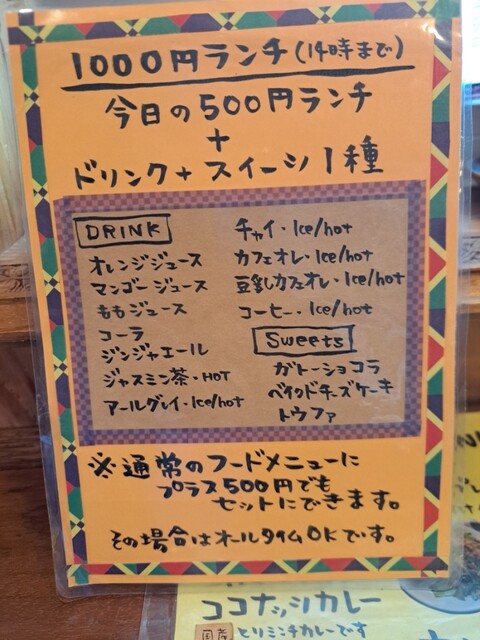 1000円ランチ(14時まで)
今日の500円ランチ
+
ドリンク+スイーツ1種
DRINK
オレンジジュース
マンゴージュース
ももジュース
コーラ
ジンジャエール
ジャスミン茶・HOT
アールグレイ・Ice/hot
チャイ・Ice/hot
カフェオレ・Ice/hot
豆乳カフェオレ・Ice/hot
コーヒー・Ice/hot
Sweets
ガトーショコラ
ベイクドチーズケーキ
トウファ
※通常のフードメニューに
プラス500円でも
セットにできます。
その場合はオールタイムOKです。
ココナッツカレー
国産 とりミンチカレーです